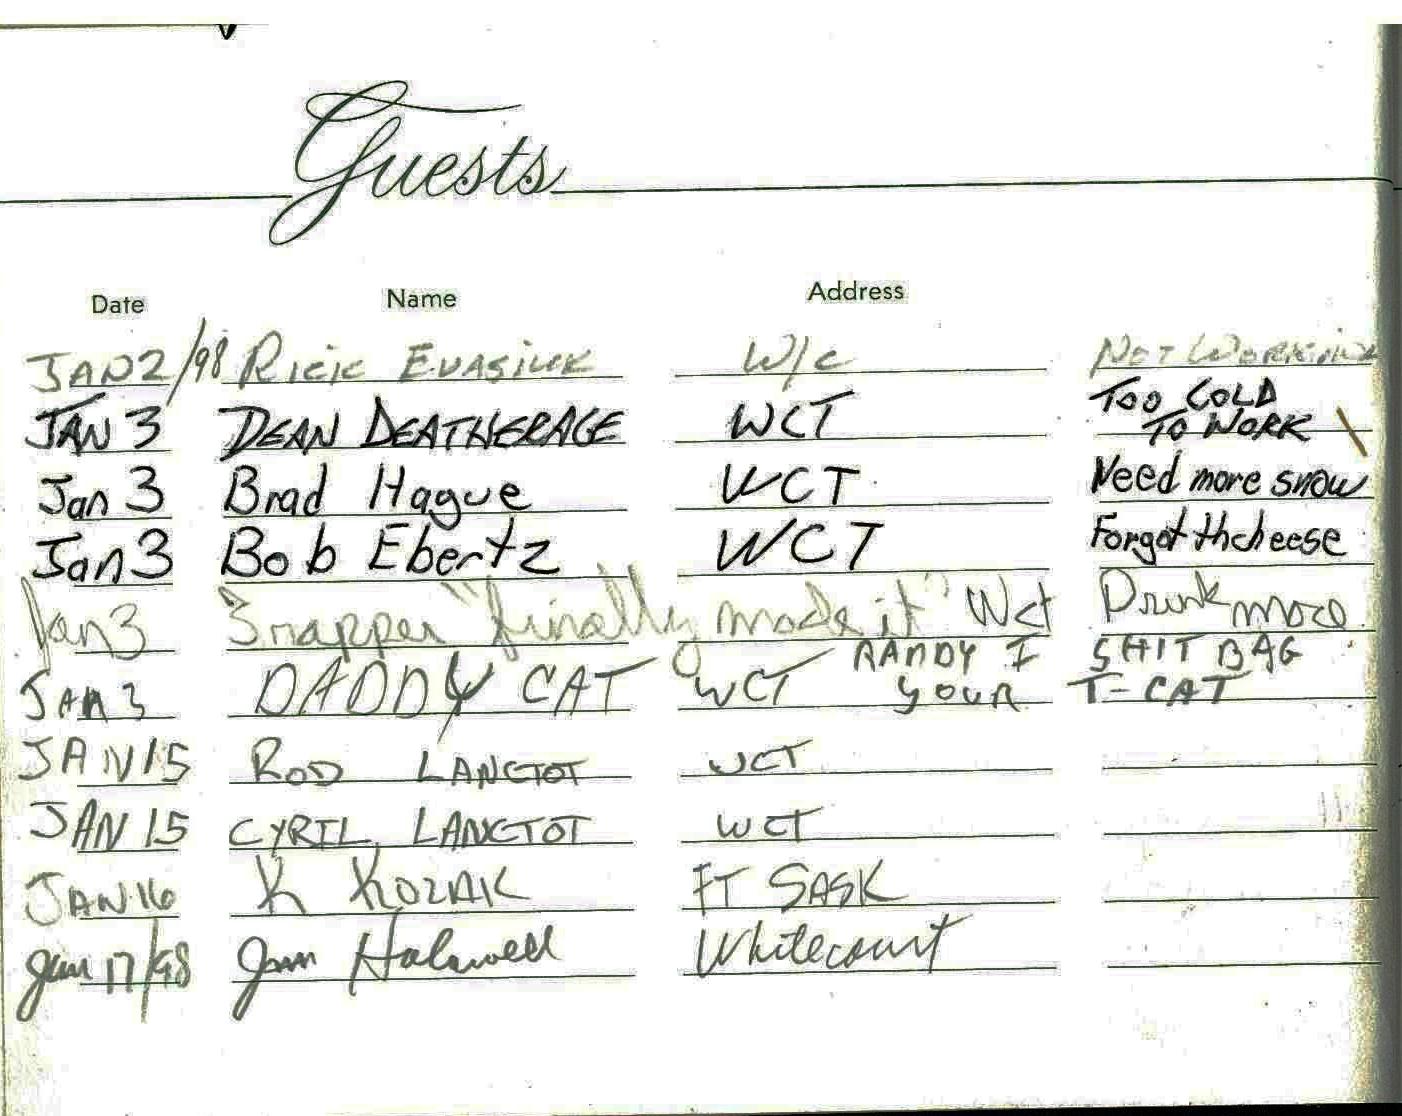 Guests
Date Name Address
JAN 2/98 RICK EVASIUK W/C NOT WORKING
JAN 3 DEAN DEATHERAGE WCT TOO COLD
TO WORK
Jan 3 Brad Hague WCT Need more snow
Jan 3 Bob Ebertz WCT Forgot thcheese
Jan 3 Snapper "finally made it" Wct Drink more
JAN 3 DADDY CAT WCT RANDY I SHIT BAG
YOUR T-CAT
JAN 15 ROD LANCTOT WCT
JAN 15 CYRIL LANCTOT WCT
JAN 16 K KOZAK FT SASK
Jan 17/98 Halwell Whitecourt